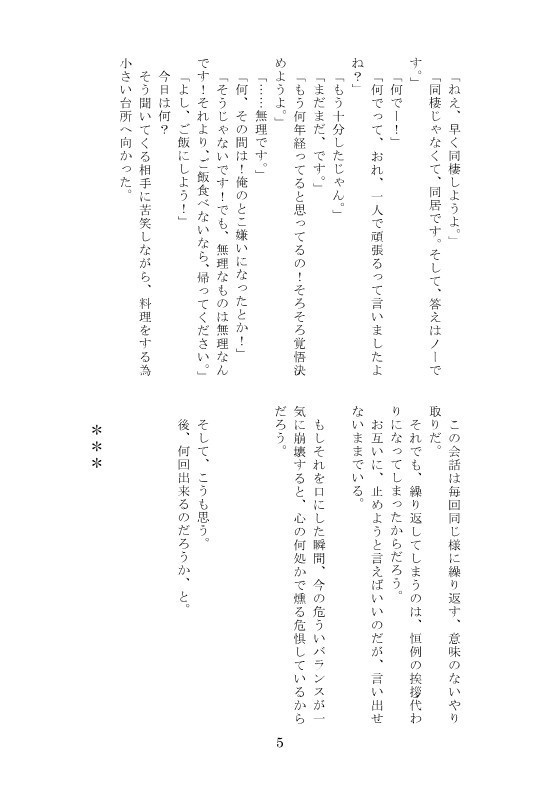 「ねえ、早く同棲しようよ。」
「同棲じゃなくて、同居です。そして、答えはノーで
す。」
「何でー！」
「何でって、おれ、一人で頑張るって言いましたよ
ね？」
「もう十分したじゃん。」
「まだまだ、です。」
「もう何年経ってると思ってるの！そろそろ覚悟決
めようよ。」
「……無理です。」
「何、その間は！俺のとこ嫌いになったとか！」
「そうじゃないです！でも、無理なものは無理なん
です！それより、ご飯食べないなら、帰ってください。」
「よし、ご飯にしよう！」
今日は何？
そう聞いてくる相手に苦笑しながら、料理をする為
小さい台所へ向かった。
この会話は毎回同じ様に繰り返す、意味のないやり
取りだ。
それでも、繰り返してしまうのは、恒例の挨拶代わ
りになってしまったからだろう。
お互いに、止めようと言えばいいのだが、言い出せ
ないままでいる。
もしそれを口にした瞬間、今の危ういバランスが一
気に崩壊すると、心の何処かで燻る危惧しているから
だろう。
そして、こうも思う。
後、何回出来るのだろうか、と。
＊＊＊
5